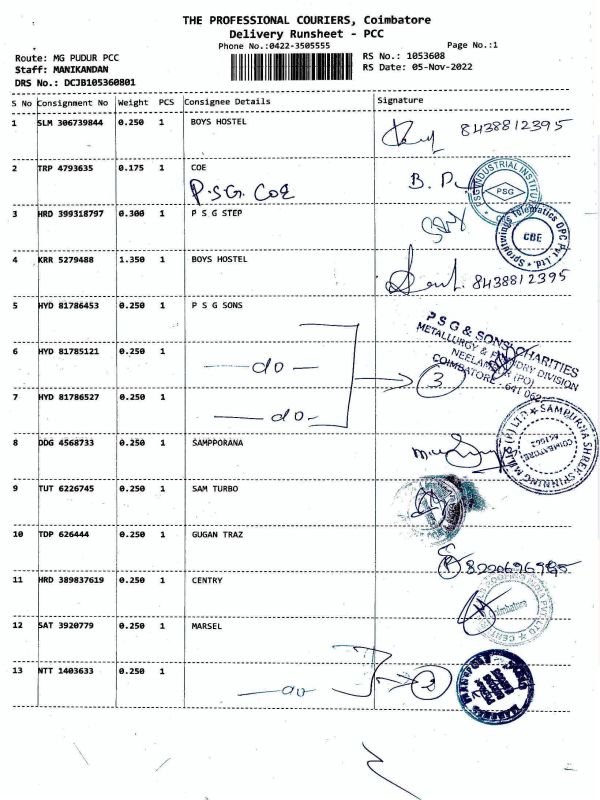 THE PROFESSIONAL COURIERS, Coimbatore
Delivery Runsheet - PCC
Phone No.:0422-3505555
Page No.:1
Route: MG PUDUR PCC
RS No.: 1053608
Staff: MANIKANDAN
RS Date: 05-Nov-2022
DRS No.: DCJB105360801
S No Consignment No Weight PCS Consignee Details Signature
1 SLM 306739844 0.250 1 BOYS HOSTEL 8438812395
2 TRP 4793635 0.175 1 COE B. P.
P.S.G. COE
PSG INDUSTRIAL INSTITUTE
PSG
3 HRD 399318797 0.300 1 P S G STEP
Sproutwings Telematics OPC Pvt. Ltd.
CBE
4 KRR 5279488 1.350 1 BOYS HOSTEL 8438812395
5 HYD 81786453 0.250 1 P S G SONS
P S G & SONS' CHARITIES
METALLURGY & FOUNDRY DIVISION
NEELAMBUR (PO)
COIMBATORE - 641 062
6 HYD 81785121 0.250 1
do
3
7 HYD 81786527 0.250 1
do
8 DDG 4568733 0.250 1 SAMPPORANA
SAMPURNA SHREE SPINNING MILLS (P) LTD
COIMBATORE
641062
9 TUT 6226745 0.250 1 SAM TURBO
10 TDP 626444 0.250 1 GUGAN TRAZ
11 HRD 389837619 0.250 1 CENTRY
Coimbatore
12 SAT 3920779 0.250 1 MARSEL
13 NTT 1403633 0.250 1
do
2